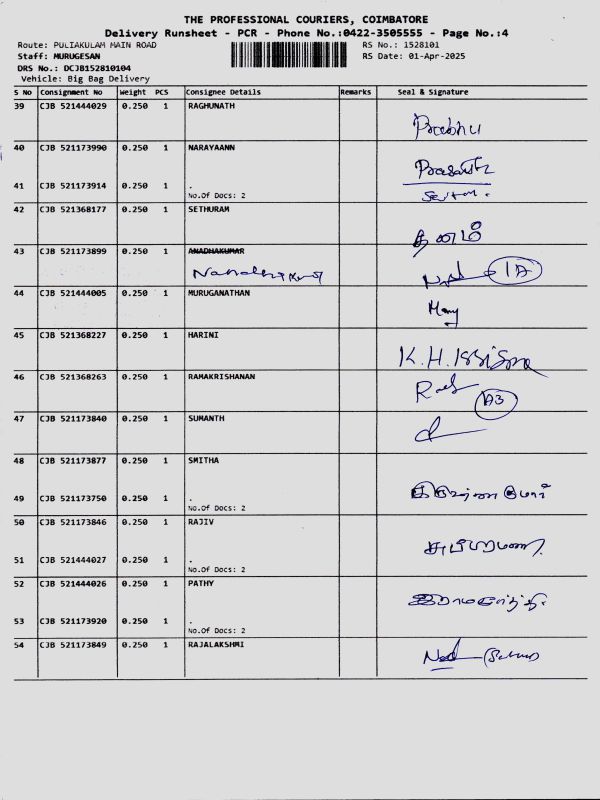 THE PROFESSIONAL COURIERS, COIMBATORE
Delivery Runsheet - PCR - Phone No.:0422-3505555 - Page No.:4
Route: PULIAKULAM MAIN ROAD RS No.: 1528101
Staff: MURUGESAN RS Date: 01-Apr-2025
DRS No.: DCJB152810104
Vehicle: Big Bag Delivery
S No Consignment No Weight PCS Consignee Details Remarks Seal & Signature
39 CJB 521444029 0.250 1 RAGHUNATH
Prabhu
40 CJB 521173990 0.250 1 NARAYAANN
Prasanth
41 CJB 521173914 0.250 1 .
No.Of Docs: 2
42 CJB 521368177 0.250 1 SETHURAM
43 CJB 521173899 0.250 1 ANADHAKUMAR
1A
44 CJB 521444005 0.250 1 MURUGANATHAN
45 CJB 521368227 0.250 1 HARINI
K.H.
46 CJB 521368263 0.250 1 RAMAKRISHANAN
A3
47 CJB 521173840 0.250 1 SUMANTH
48 CJB 521173877 0.250 1 SMITHA
49 CJB 521173750 0.250 1 .
No.Of Docs: 2
50 CJB 521173846 0.250 1 RAJIV
51 CJB 521444027 0.250 1 .
No.Of Docs: 2
52 CJB 521444026 0.250 1 PATHY
53 CJB 521173920 0.250 1 .
No.Of Docs: 2
54 CJB 521173849 0.250 1 RAJALAKSHMI